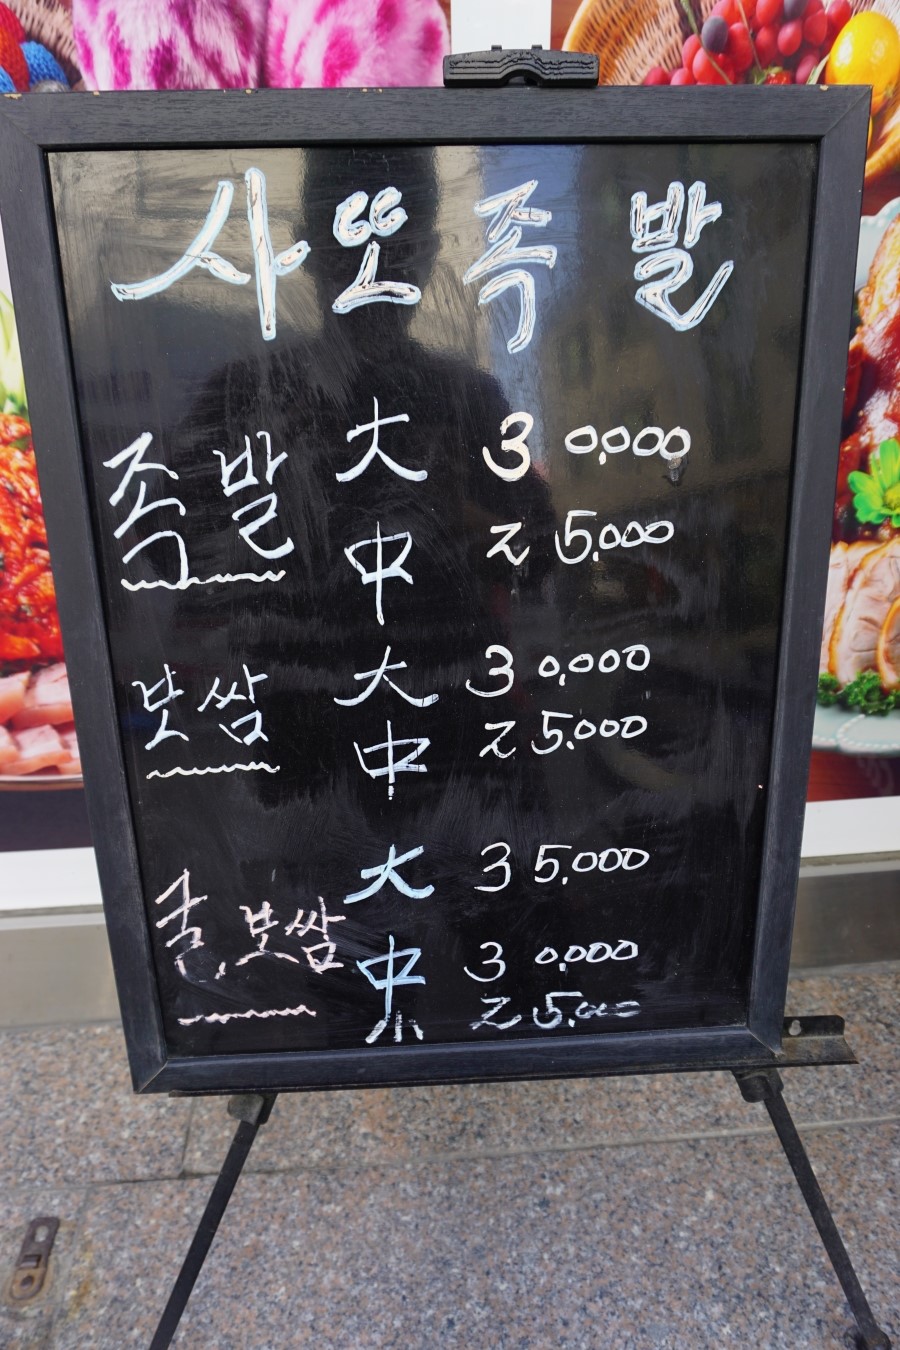 사또족발
족발 大 30,000
中 25,000
보쌈 大 30,000
中 25,000
굴,보쌈 大 35,000
中 30,000
小 25,000